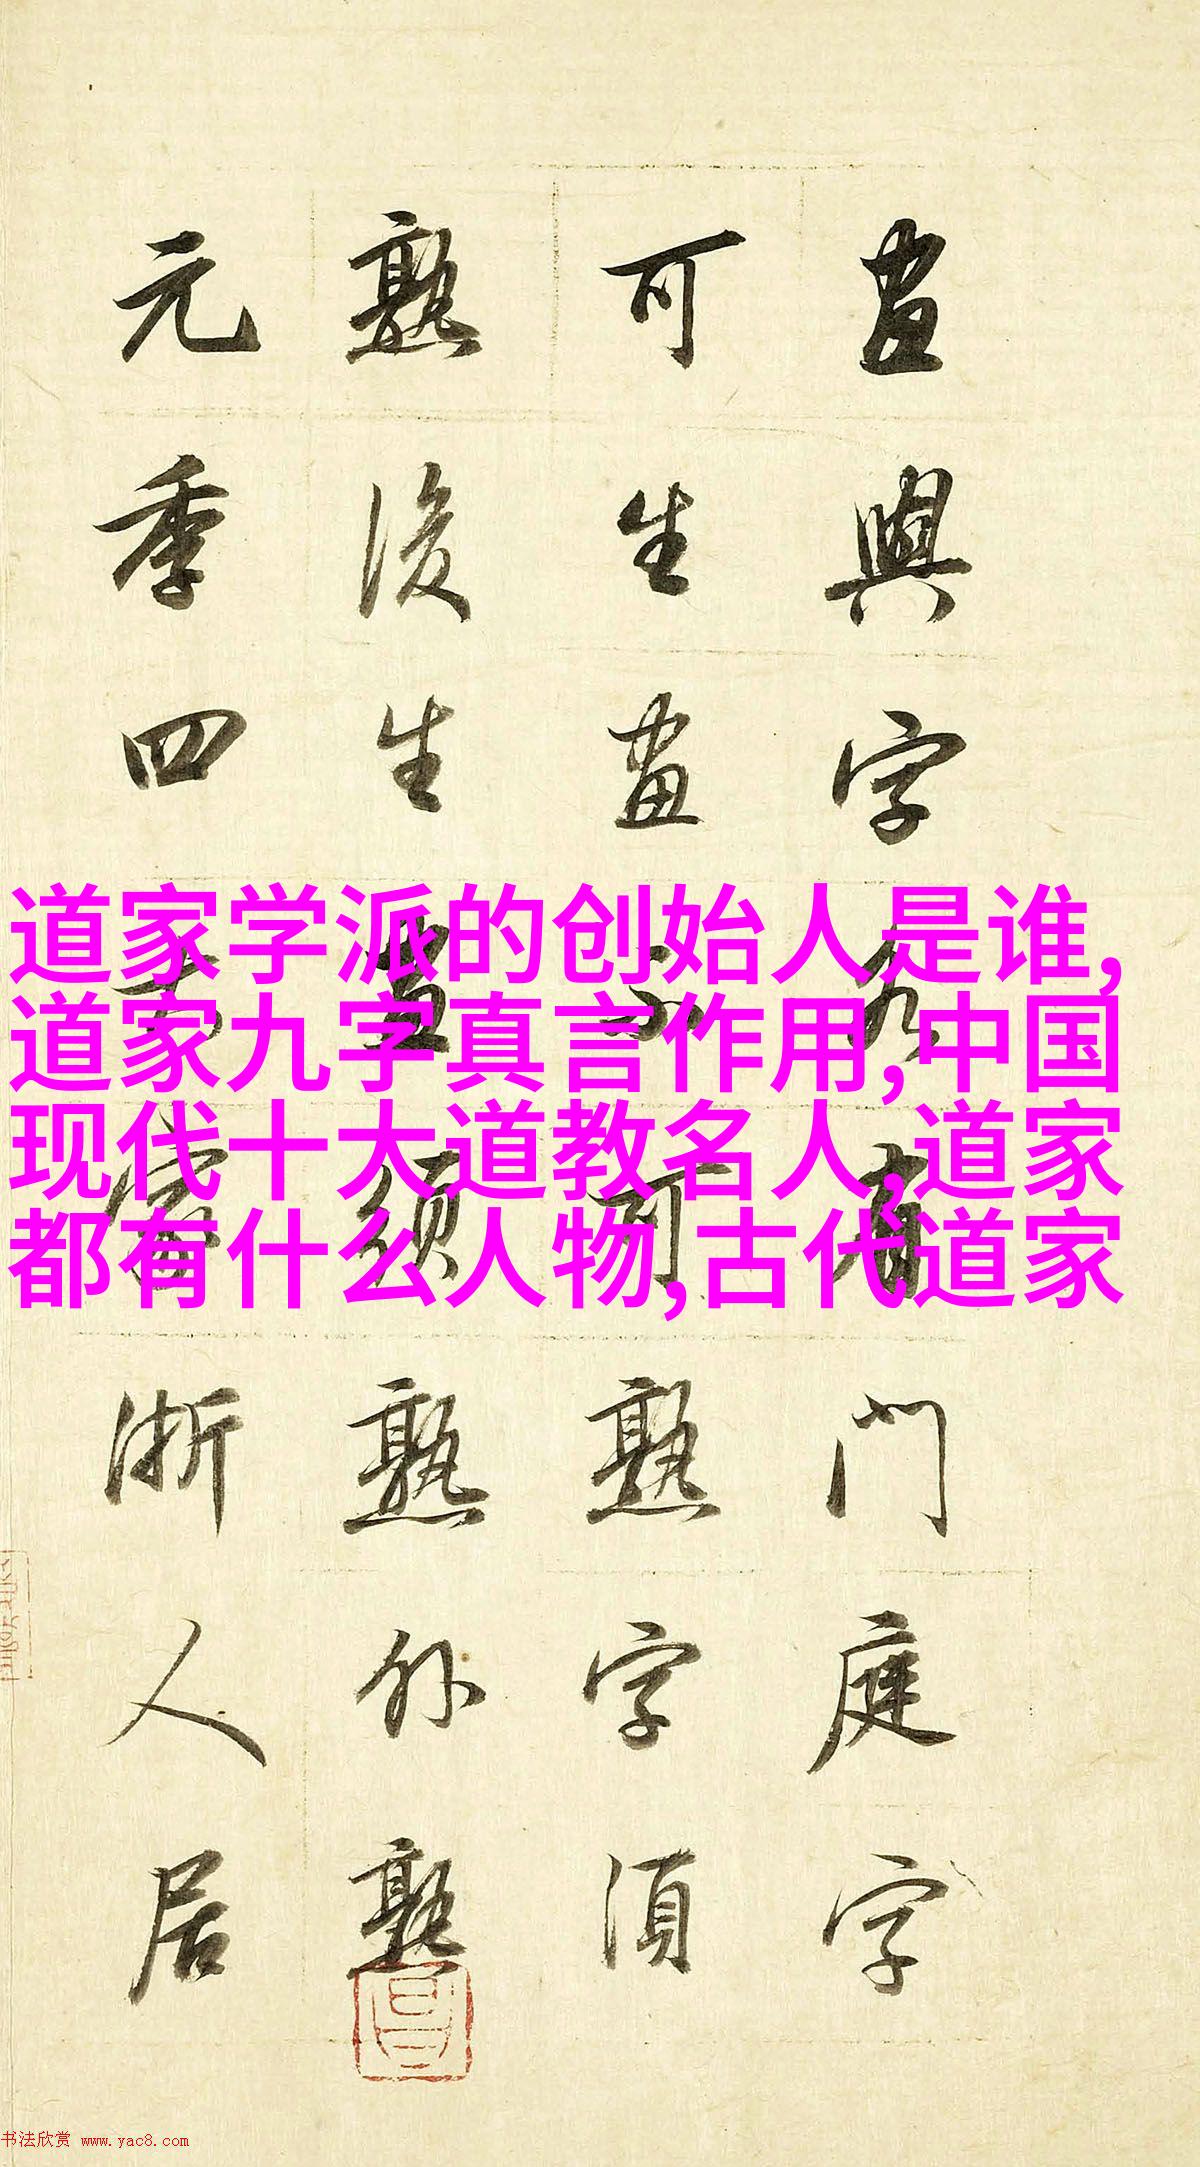 畫與字各有門庭字
可生畫不可熟字須
熟後生畫須熟外熟
元季四大家浙人居
道家学派的创始人是谁,
道家九字真言作用,中国
现代十大道教名人,道家
都有什么人物,古代道家
书法欣赏 www.yac8.com